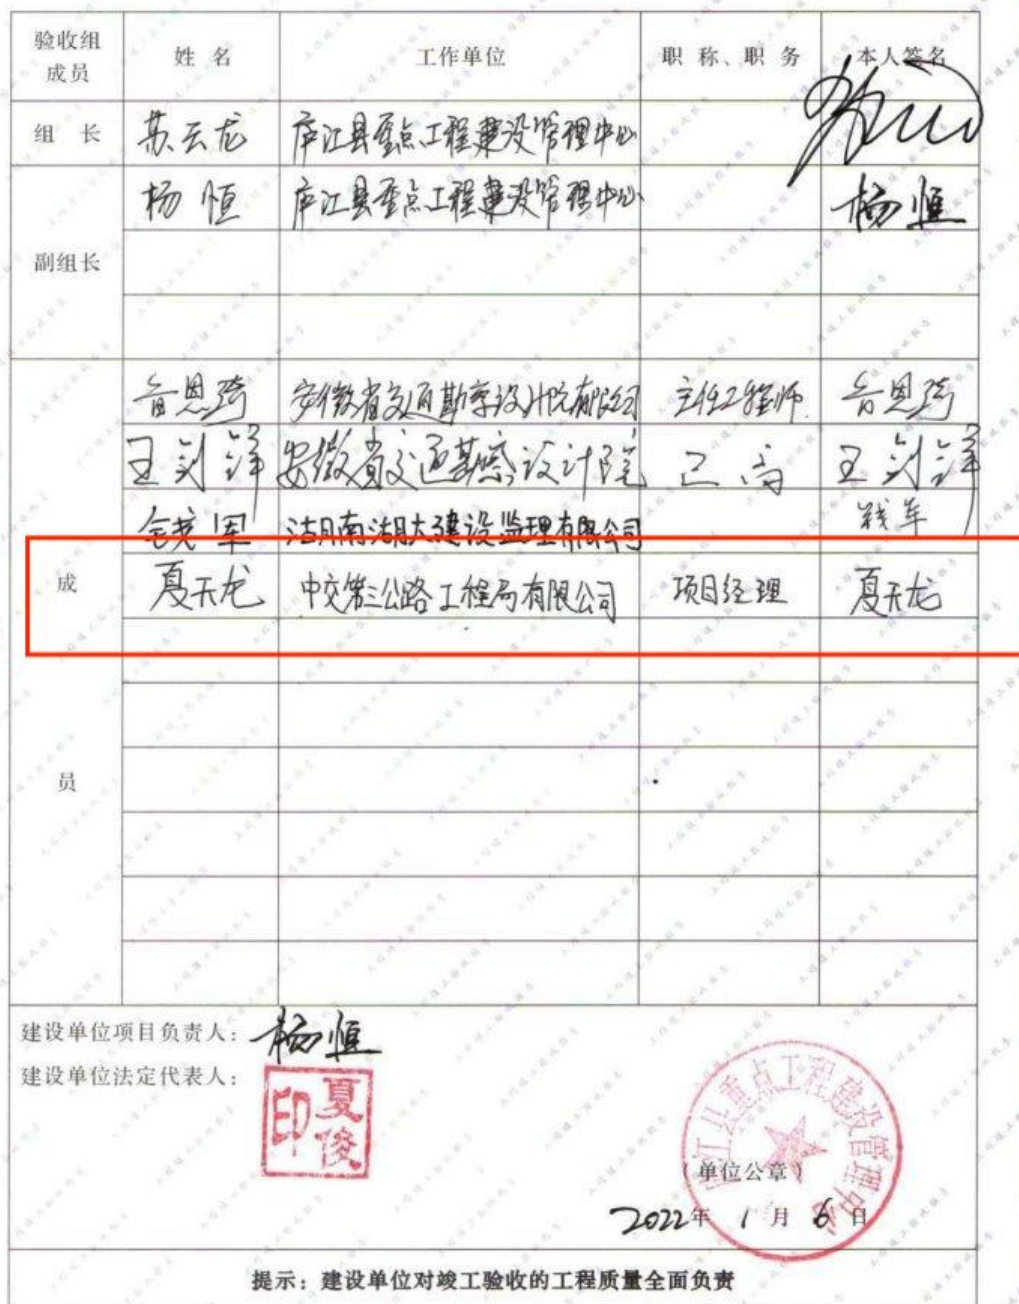 验收组成员 姓 名 工作单位 职 称、职 务 本人签名
组 长 苏云龙 庐江县重点工程建设管理中心
杨恒 庐江县重点工程建设管理中心 杨恒
副组长
鲁恩琦 安徽省交通勘察设计院有限公司 主任工程师 鲁恩琦
王剑锋 安徽省交通勘察设计院 正高 王剑锋
钱军 湖南湖大建设监理有限公司 钱军
成 夏天龙 中交第三公路工程局有限公司 项目经理 夏天龙
员
建设单位项目负责人: 杨恒
建设单位法定代表人:
夏俊印
庐江县重点工程建设管理中心
(单位公章)
2022年 1 月 6 日
提示:建设单位对竣工验收的工程质量全面负责